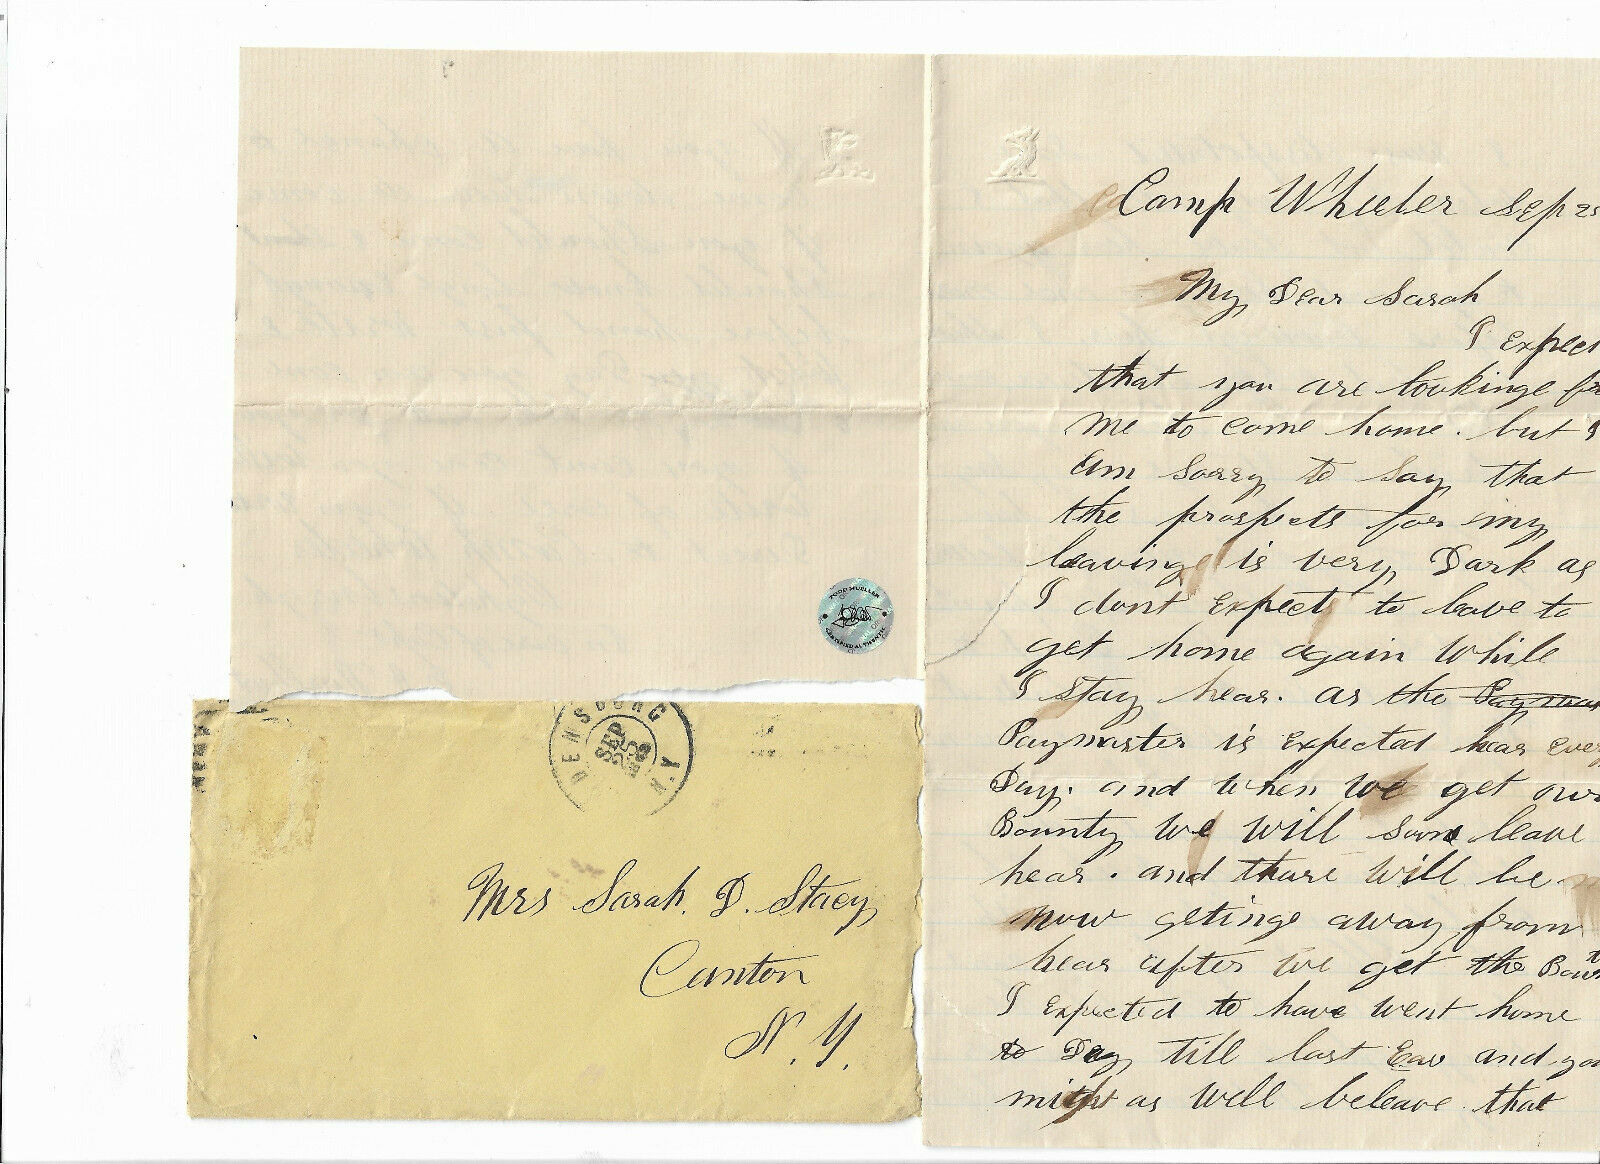 Camp Wheeler Sep 25
My Dear Sarah
I Expect
that you are lookinge for
me to come home. but I
am Sorry to Say that
the prospects for my
leaving is very Dark as
I dont Expect to leave to
get home again While
I stay hear. as the Pay
Paymaster is Expected hear Ever
Day. and when we get our
Bounty we will soon leave
hear. and thare will be
now getinge away from
hear after we get the
I Expected to have went home
to Day till last Eav and you
miht as well beleave that
DENSBURG
N.Y
SEP
25
Mrs Sarah. D. Stacy
Canton
N. Y.
TODD MUELLER
CERTIFIED AUTHENTIC